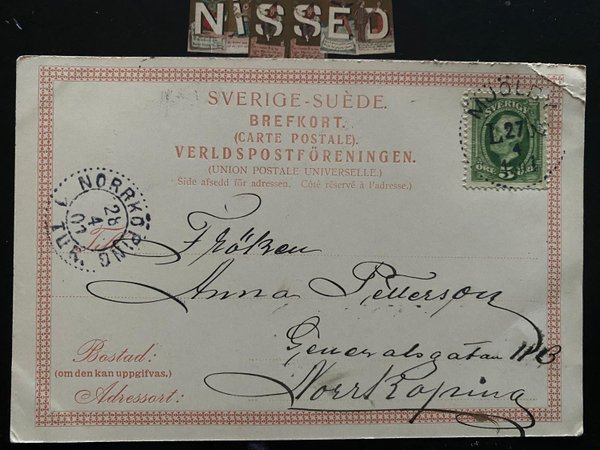 NISSED
SVERIGE-SUÈDE.
BREFKORT.
(CARTE POSTALE.)
VERLDSPOSTFÖRENINGEN.
(UNION POSTALE UNIVERSELLE.)
Side afsedd för adressen. Côté réservé à l'adresse.)
SVERIGE
5
ÖRE
MJÖLBY
L.27
NORRKÖPING
28
4
01
1 TUR.
Till
Fröken
Anna Petterson
Generalsgatan
Norrköping
Bostad:
(om den kan uppgifvas.)
Adressort: